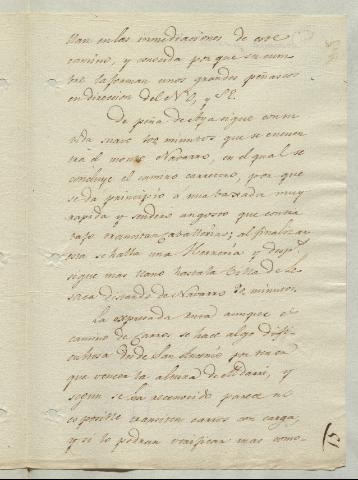 llan en las inmediaciones de este
camino, y conocida por que su cum
bre la forman unos grandes peñascos
en direccion del NE, y SE.
De peña de Aya sigue con su
vida suave 102 minutos que se encuen
tra el monte Navarro, en el qual se
concluye el camino carretero, por que
se da principio á una baxada muy
rapida y sendero angosto que con tra
bajo transitan caballerias; al finalizar
esta se halla una Herreria y despues
sigue mas llano hasta la Villa de Le
saca distando de Navarro 82 minutos.
La expresada ruta aunque el
camino de carros se hace algo difi
cultosa desde San Antonio por tener
que vencer la altura de, y
segun se ha reconocido parece no
es posible transiten carros con carga,
y si lo podran verificar mas como-
15